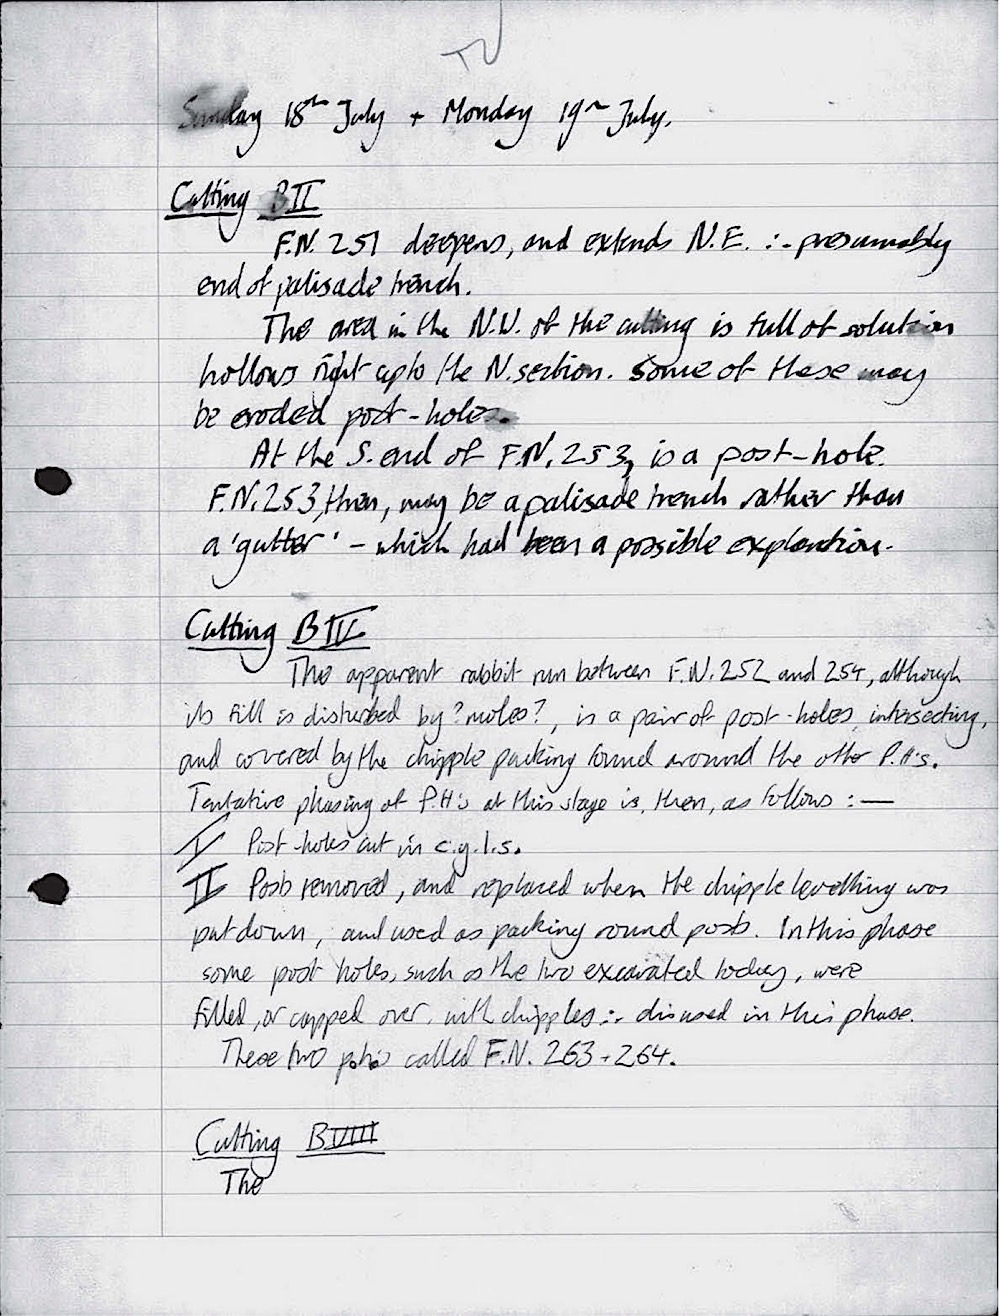 Sunday 18th July + Monday 19th July.
Cutting BII
F.N. 251 deepens, and extends N.E. :- presumably
end of palisade trench.
The area in the N.W. of the cutting is full of solution
hollows right upto the N. section. Some of these may
be eroded post-holes.
At the S. end of F.N. 253, is a post-hole.
F.N. 253, then, may be a palisade trench rather than
a 'gutter' - which had been a possible explantion.
Cutting BIV
The apparent rabbit run between F.N. 252 and 254, although
its fill is disturbed by ?moles?, is a pair of post-holes, intersecting,
and covered by the chipple packing found around the other P.H's.
Tentative phasing of P.H's at this stage is, then, as follows :—
I Post-holes cut in c.g.l.s.
II Posts removed, and replaced when the chipple levelling was
put down, and used as packing round posts. In this phase
some post holes, such as the two excavated today, were
filled, or capped over, with chipples ∴ disused in this phase.
These two p.h.s called F.N. 263 + 264.
Cutting BVIII
The